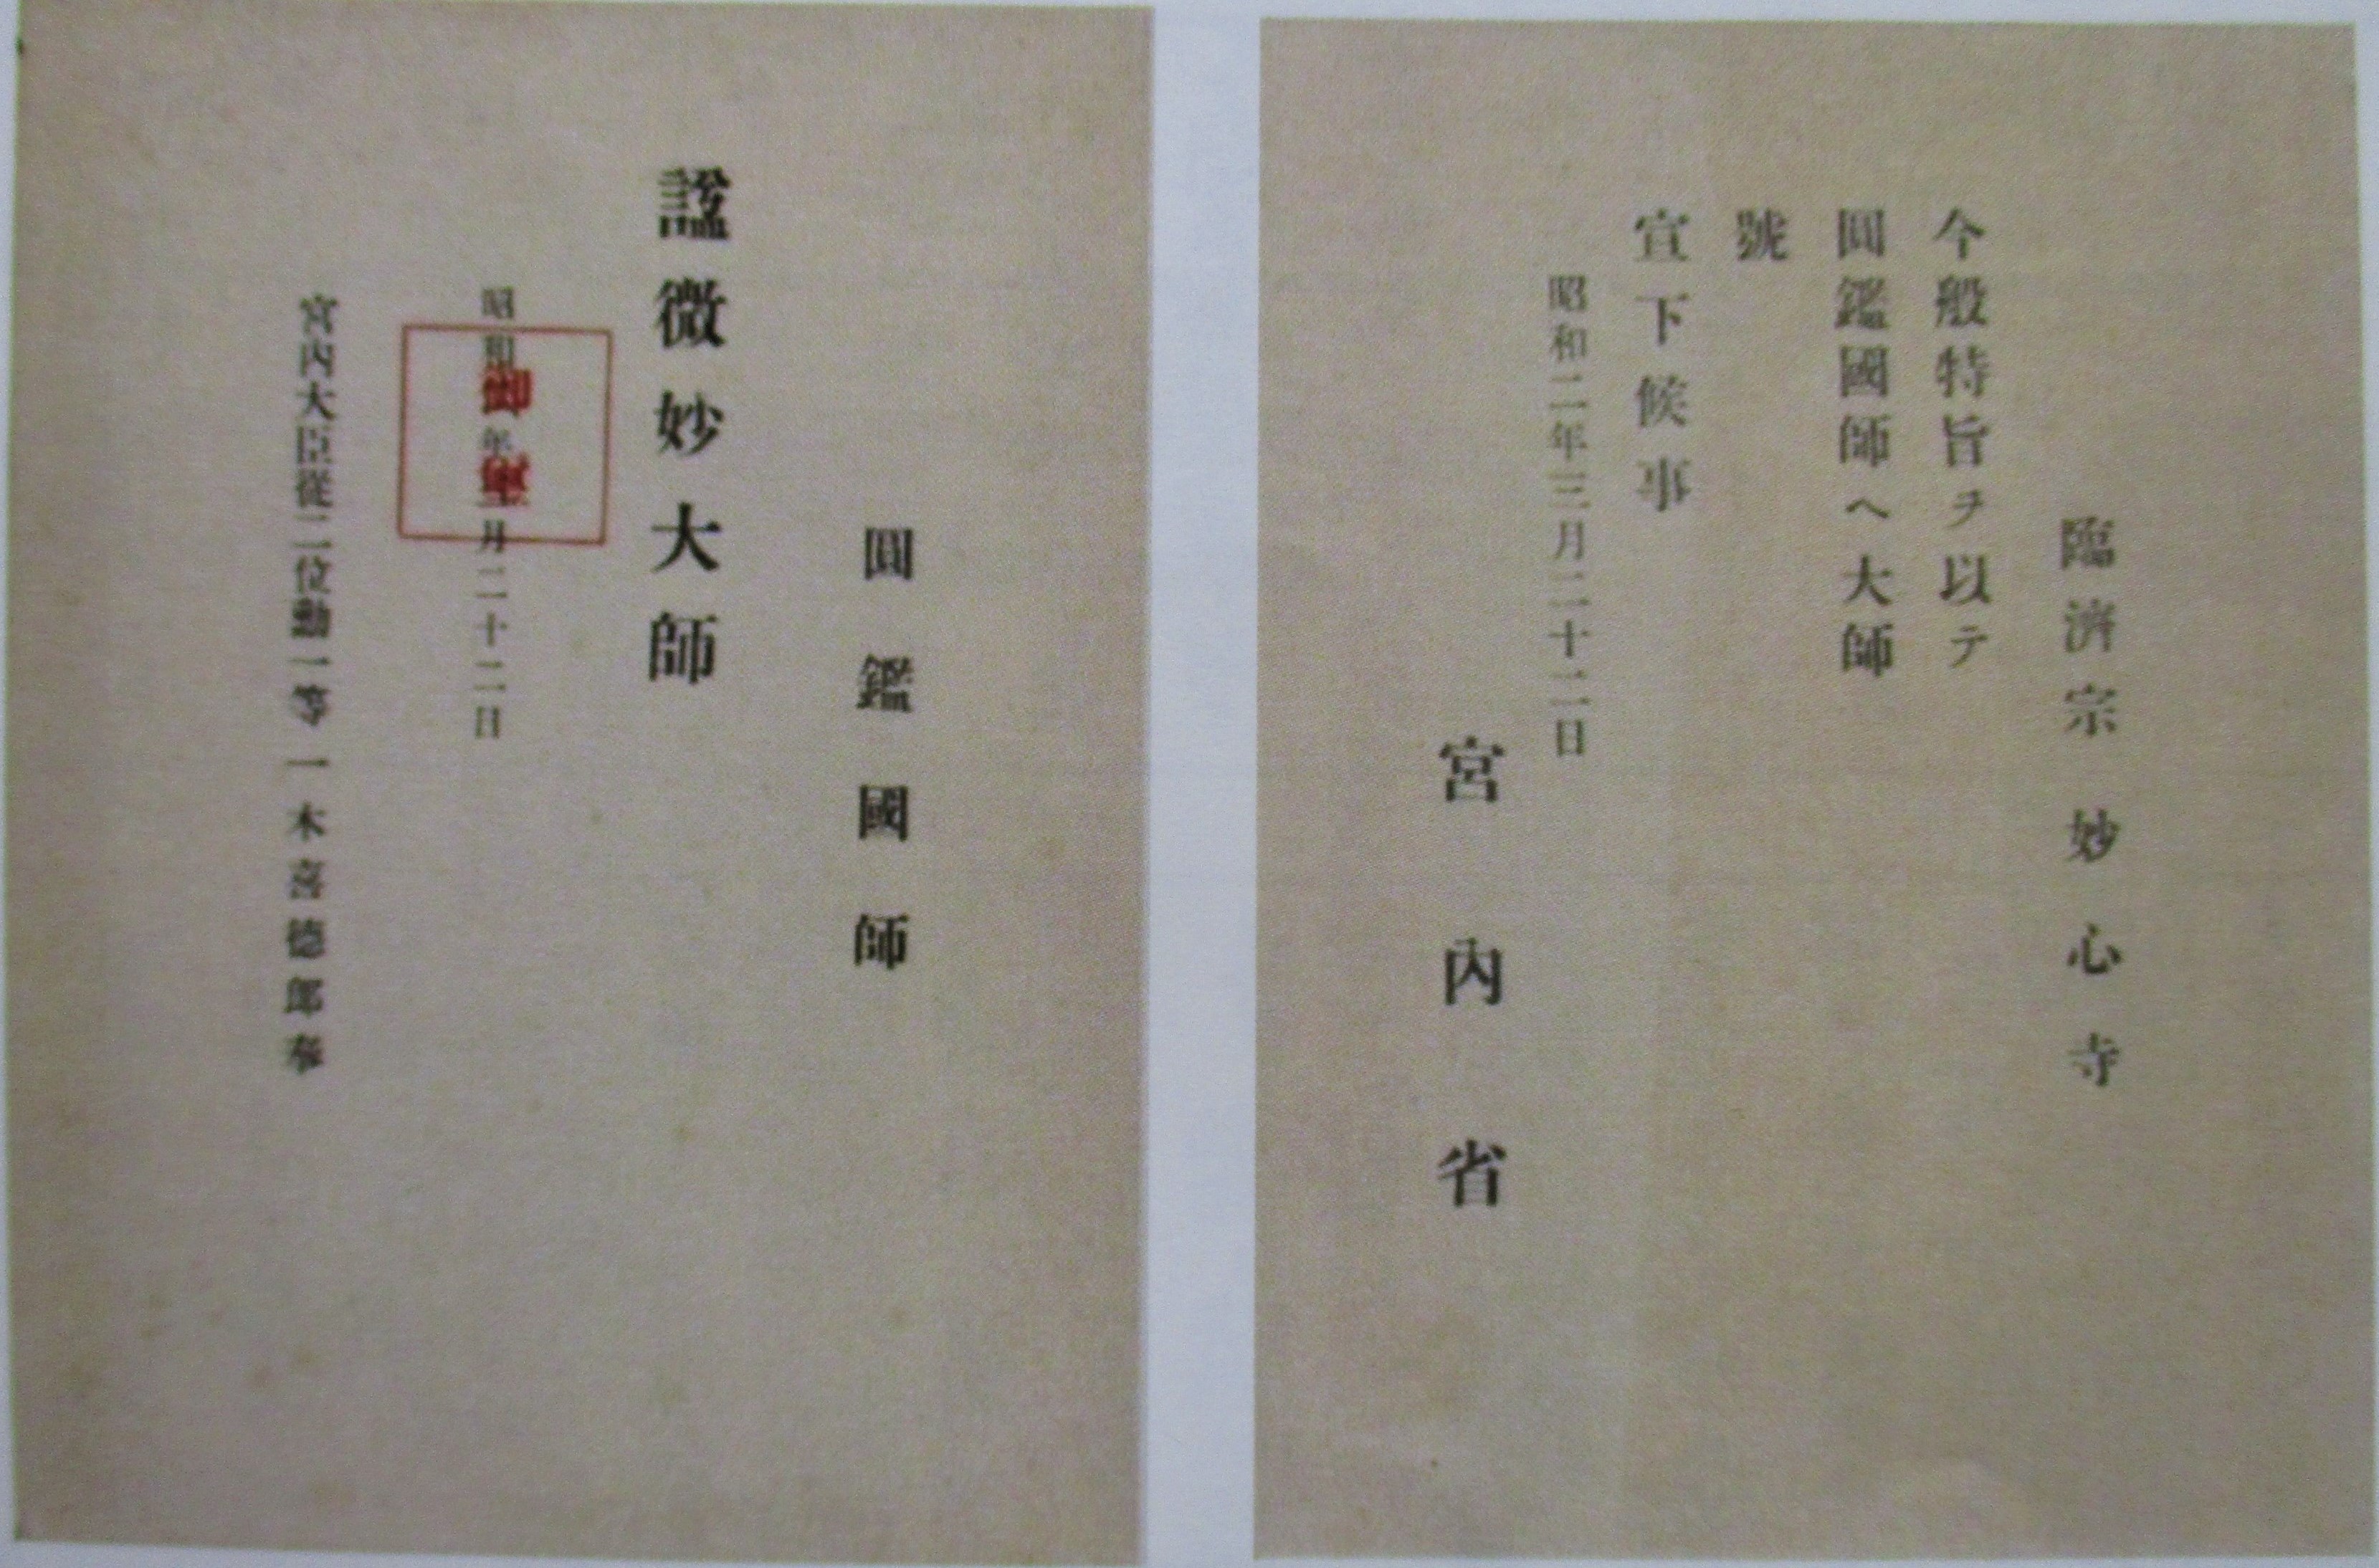 臨濟宗 妙心寺
今般特旨ヲ以テ
圓鑑國師ヘ大師
號
宣下候事
昭和二年三月二十二日
宮內省
圓鑑國師
諡微妙大師
昭和二年三月二十二日
御璽
宮內大臣從二位勳一等一木喜德郎奉